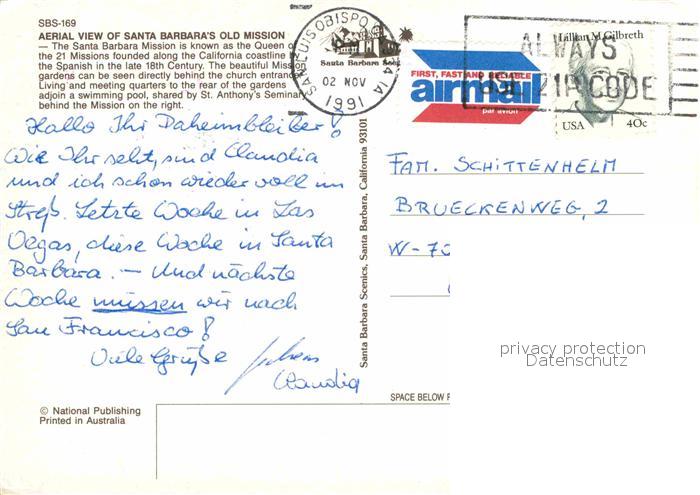 SBS-169
AERIAL VIEW OF SANTA BARBARA'S OLD MISSION
— The Santa Barbara Mission is known as the Queen of
the 21 Missions founded along the California coastline
the Spanish in the late 18th Century. The beautiful Mission
gardens can be seen directly behind the church entrance
Living and meeting quarters to the rear of the gardens
adjoin a swimming pool, shared by St. Anthony's Seminary
behind the Mission on the right.
Hallo Ihr Daheimbleiber!
Wie Ihr seht, sind Claudia
und ich schon wieder voll im
Streß. Letzte Woche in Las
Vegas, diese Woche in Santa
Barbara. — Und nächste
Woche müssen wir nach
San Francisco!
Viele Grüße
Claudia
© National Publishing
Printed in Australia
Santa Barbara Scenics, Santa Barbara, California 93101
SAN LUIS OBISPO CA
02 NOV
1991
FIRST, FAST AND RELIABLE
airmail
par avion
ALWAYS
USE ZIP CODE
Lillian M. Gilbreth
USA 40c
FAM. SCHITTENHELM
BRUECKENWEG, 2
W-70
privacy protection
Datenschutz
SPACE BELOW